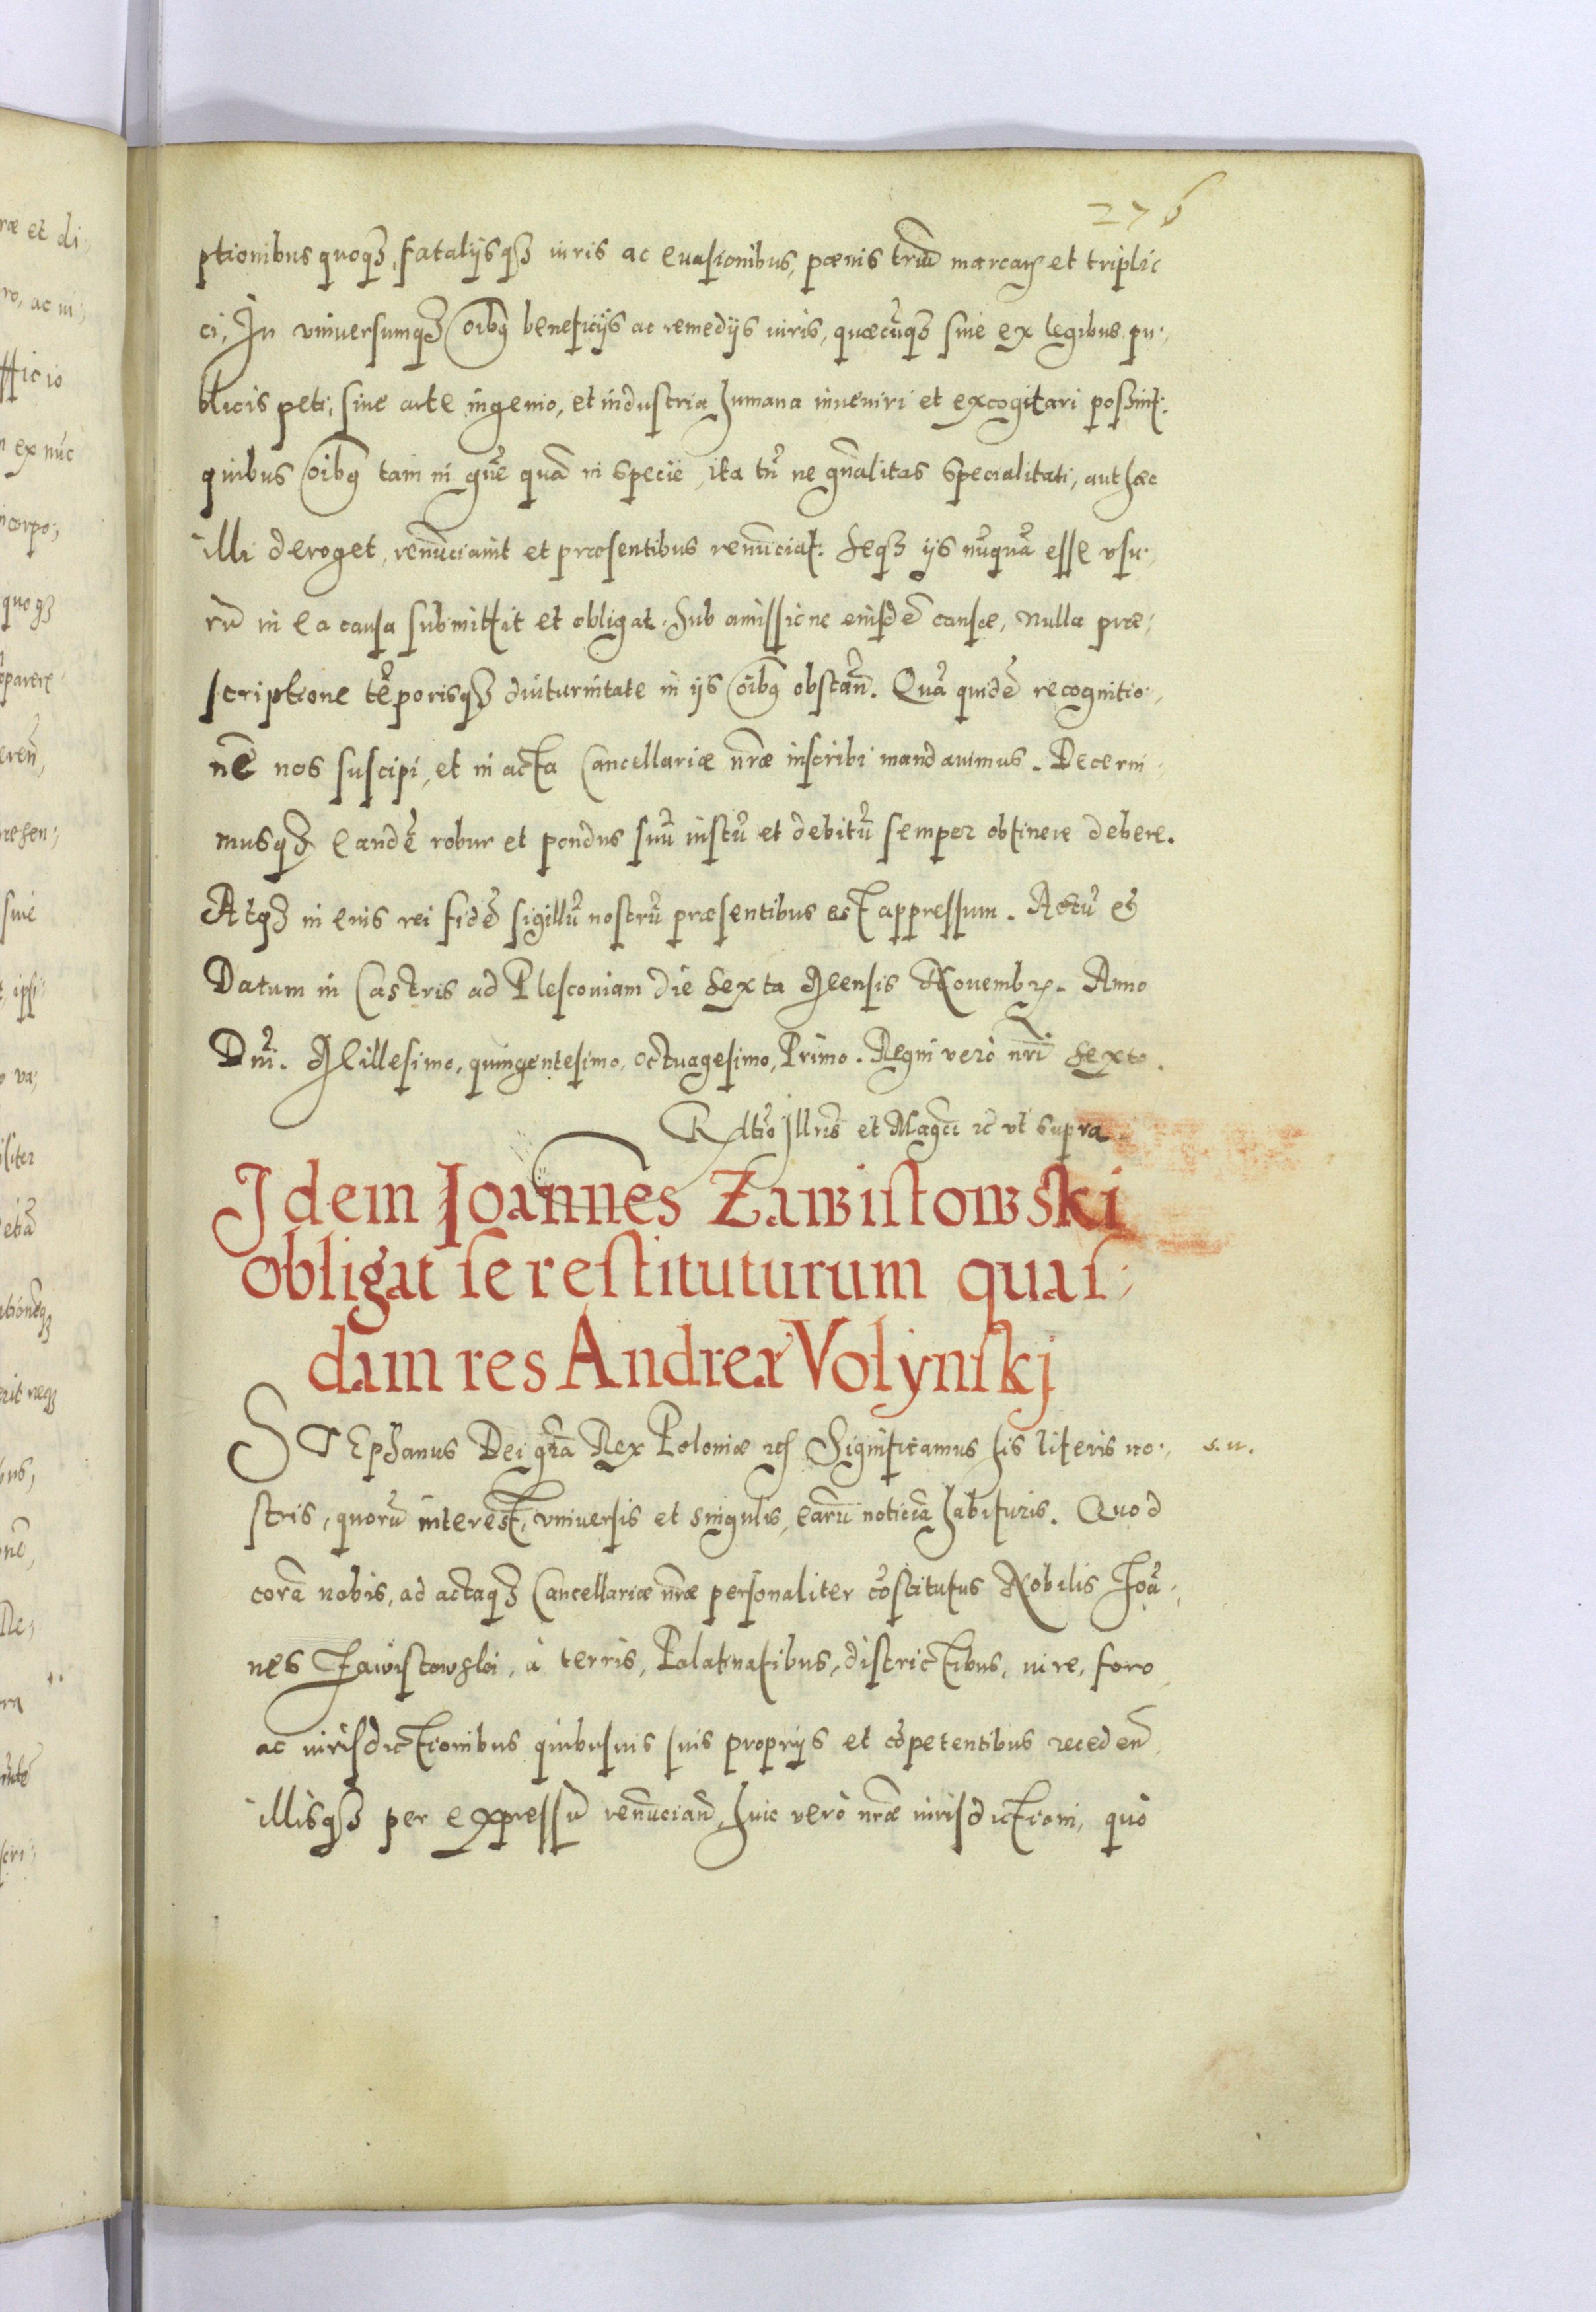 276
ptionibus quoqꝫ, fatalijsqꝫ iuris ac euasionibus, pœnis triũ marcarꝝ et triplic
ci, In vniuersumqꝫ oĩbꝰ beneficijs ac remedijs iuris, quæcũqꝫ siue ex legibus pu-
blicis peti, siue arte ingenio, et industria humana inueniri et excogitari possint.
quibus oĩbꝰ tam in gñe quã in specie, ita tñ ne gñalitas specialitati, aut hæc
illi deroget, renũciauit et præsentibus renũciat. Seqꝫ ijs nũquã esse vsu-
rũ in ea causa submittit et obligat. Sub amissione eiusdẽ causæ, nulla præ-
scriptione tẽporisqꝫ diuturnitate in ijs oĩbꝰ obstan̄. Quã quidẽ recognitio-
nẽ nos suscipi, et in acta Cancellariæ nr̃æ inscribi mandauimus. Decerni-
musqꝫ eandẽ robur et pondus suũ iustũ et debitũ semper obtinere debere.
Atqꝫ in eius rei fidẽ sigillũ nostrũ præsentibus est appressum. Actũ et
Datum in Castris ad Plescouiam die sexta Mensis Nouembrꝭ. Anno
Dñi. Millesimo, quingentesimo, octuagesimo, Primo. Regni verò nr̃i Sexto.
Rltio Illris et Magci ic vt supra.
Idem Ioannes Zawistowski
obligat se restituturum quas-
dam res Andreæ Volynskj
STEphanus Dei gr̃a Rex Poloniæ etc Significamus his literis no-
s. n.
stris, quorũ interest, vniuersis et singulis, earũ noticiã habituris. Quod
corã nobis, ad actaqꝫ Cancellariæ nr̃æ personaliter cõstitutus Nobilis Joã-
nes Zawistowski, à terris, Palatinatibus, districtibus, iure, foro
ac iurisdictionibus quibusuis suis proprijs et cõpetentibus receden̄
illisqꝫ per expressũ renũcian̄, huic verò nr̃æ iurisdictioni, quò